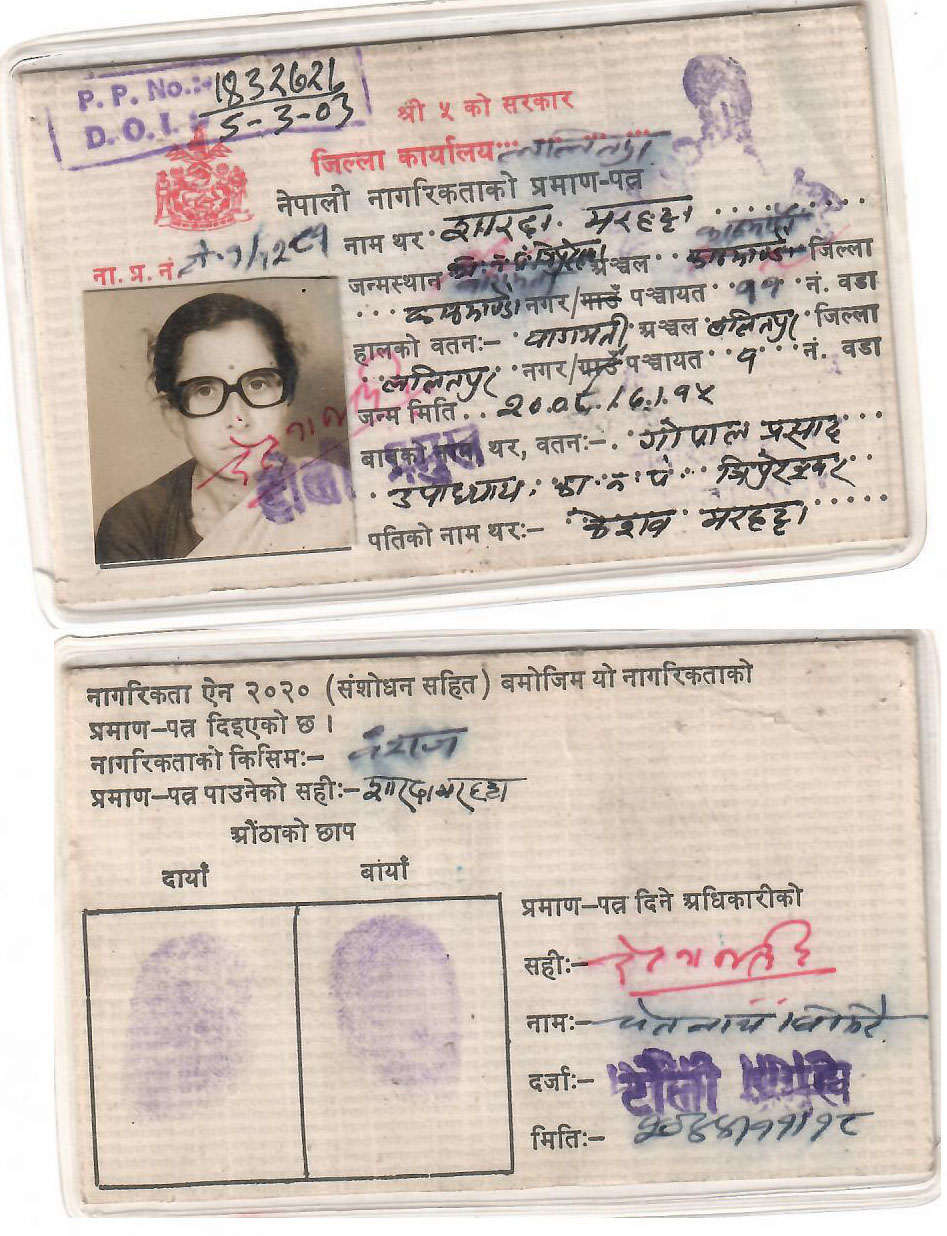 P. P. No.:- 1832626
D. O. I. :- 5-3-03
श्री ५ को सरकार
जिल्ला कार्यालय ललितपुर
नेपाली नागरिकताको प्रमाण-पत्र
ना. प्र. नं
नाम थर शारदा मरहट्टा
जन्मस्थान अञ्चल काठमाण्डौ जिल्ला
काठमाण्डौ नगर/गाउँ पञ्चायत ११ नं. वडा
हालको वतन:- वागमती अञ्चल ललितपुर जिल्ला
ललितपुर नगर/गाउँ पञ्चायत १ नं. वडा
जन्म मिति
बाबुको नाम थर, वतन:- गोपाल प्रसाद
उपाध्याय, का न पं त्रिपुरेश्वर
पतिको नाम थर:- केशव मरहट्टा
टोली प्रमुख
नागरिकता ऐन २०२० (संशोधन सहित) बमोजिम यो नागरिकताको
प्रमाण-पत्र दिइएको छ ।
नागरिकताको किसिम:- वंशज
प्रमाण-पत्र पाउनेको सही:- शारदा मरहट्टा
औंठाको छाप
दायाँ बांयाँ
प्रमाण-पत्र दिने अधिकारीको
सही:-
नाम:-
दर्जा:- टोली प्रमुख
मिति:- २०४४।११।१८